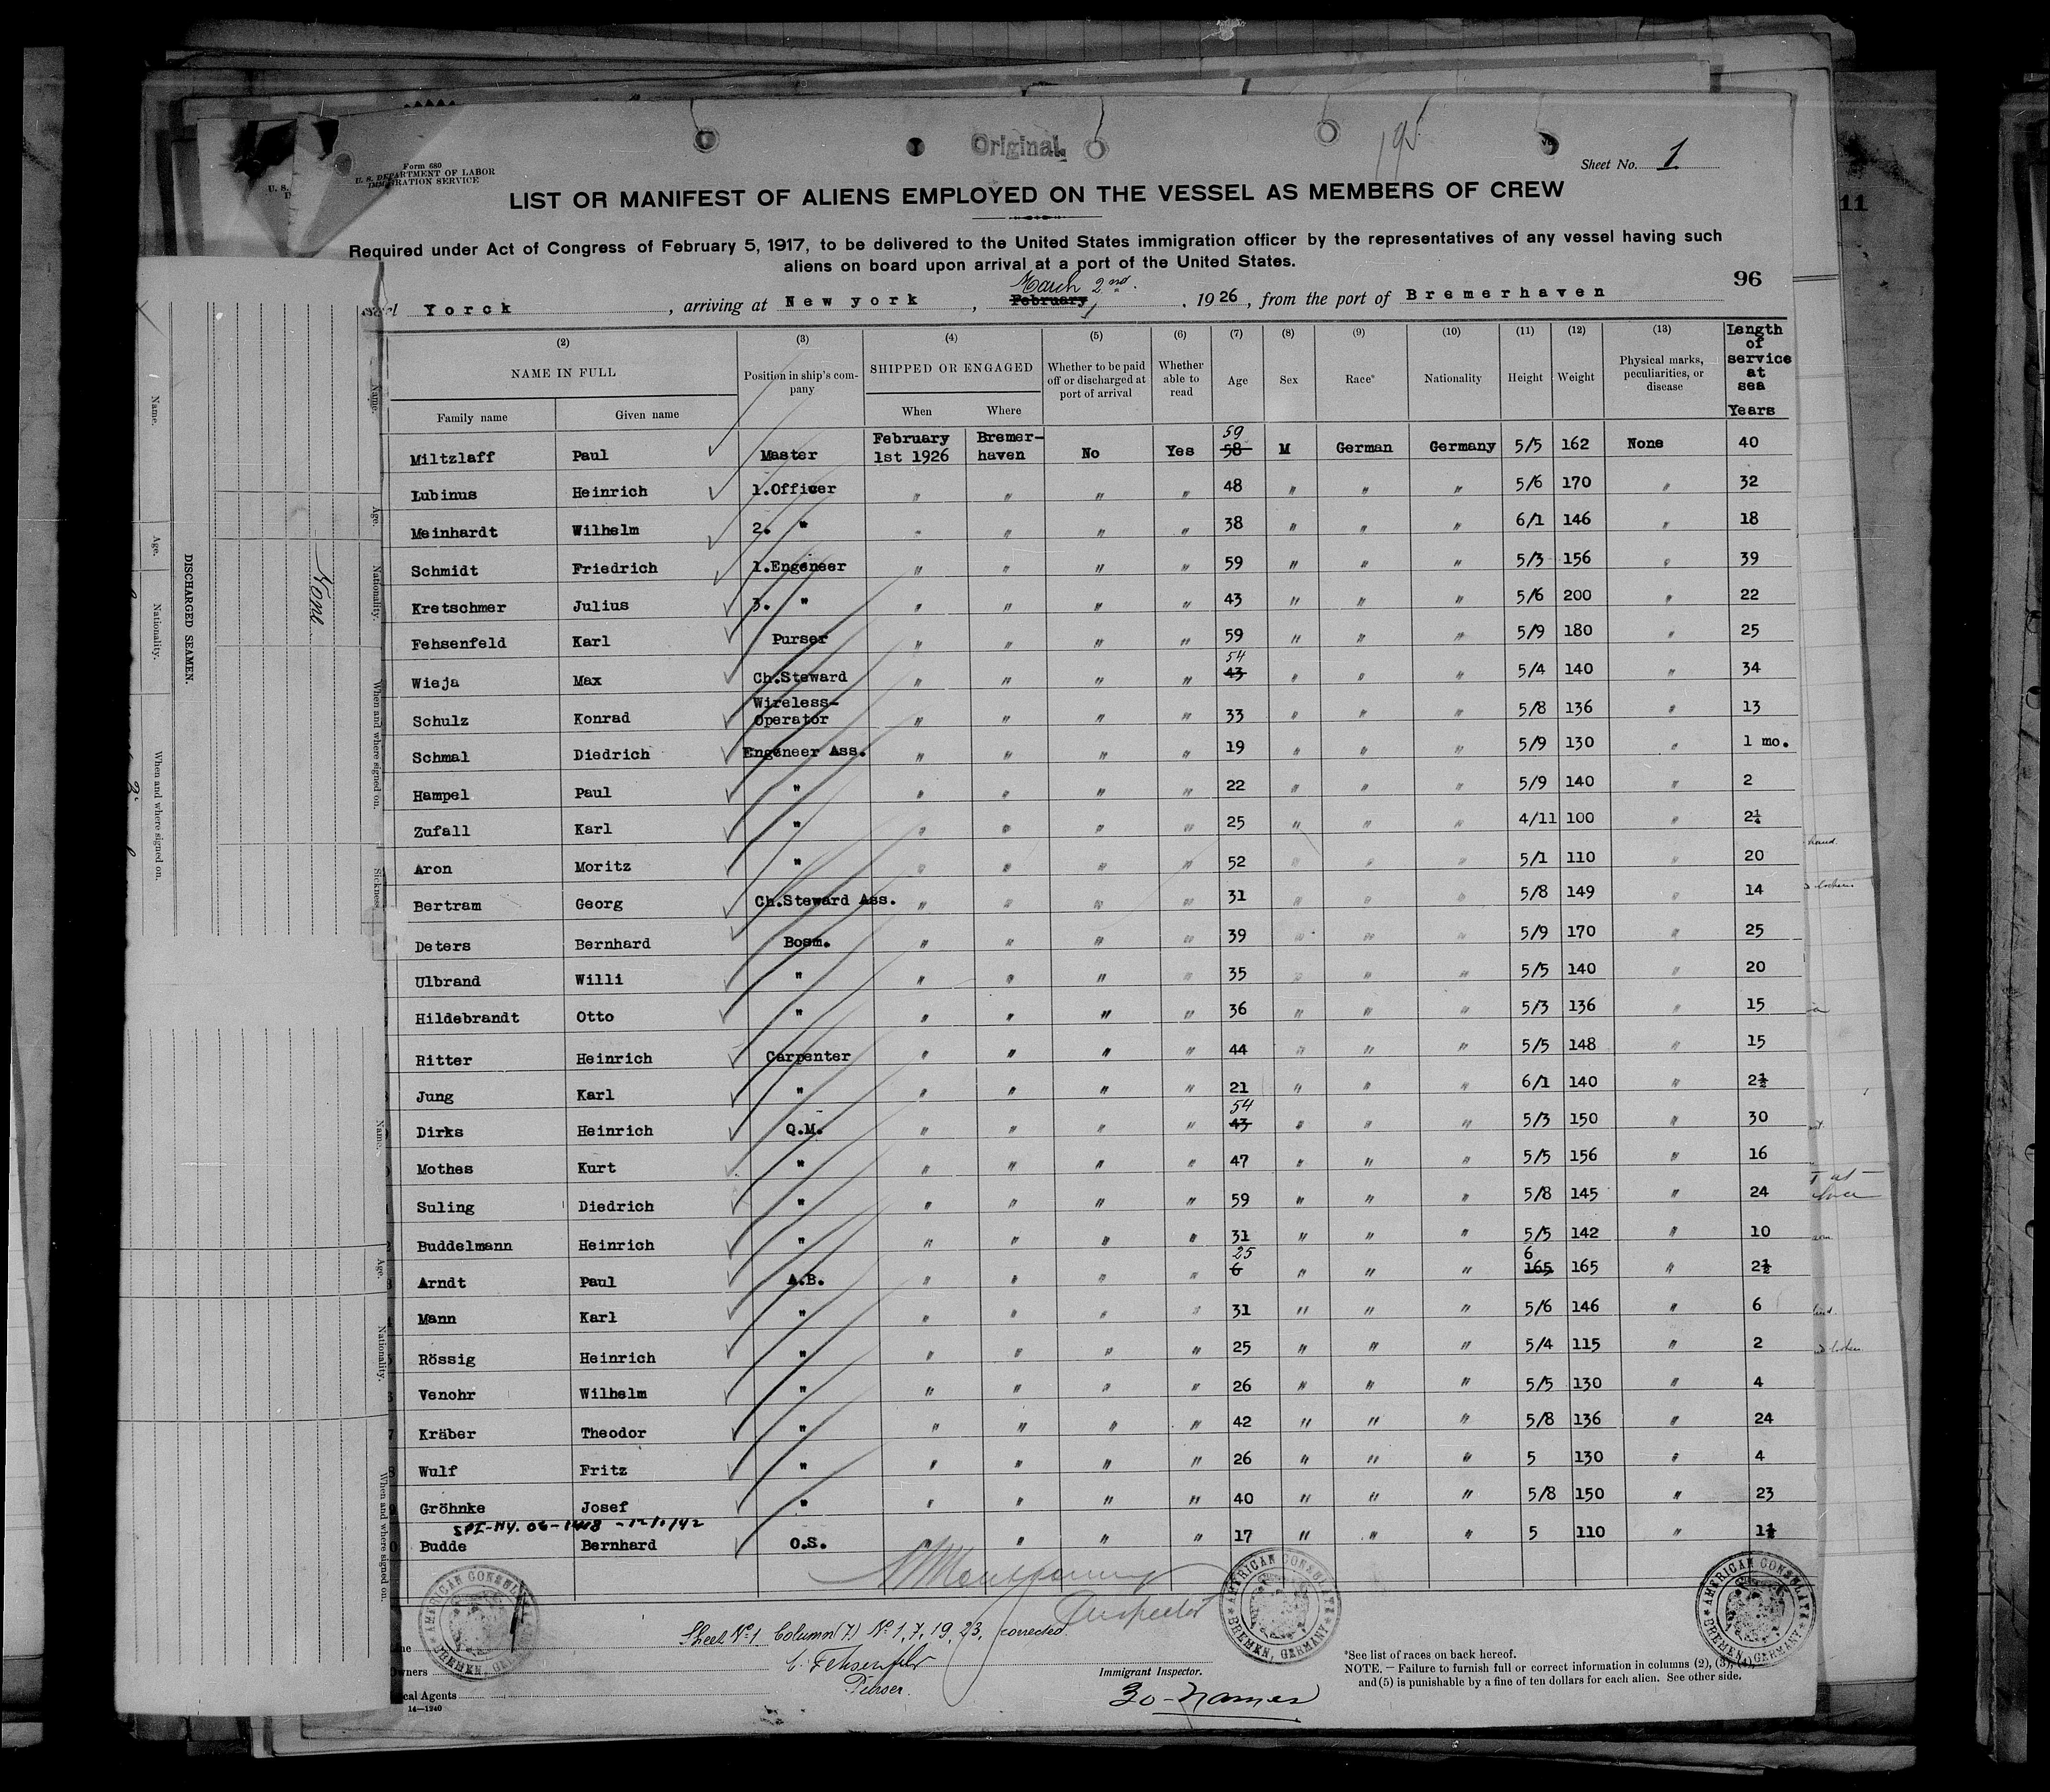 Original
195
Sheet No. 1
Form 680
U. S. DEPARTMENT OF LABOR
IMMIGRATION SERVICE
LIST OR MANIFEST OF ALIENS EMPLOYED ON THE VESSEL AS MEMBERS OF CREW
Required under Act of Congress of February 5, 1917, to be delivered to the United States immigration officer by the representatives of any vessel having such
aliens on board upon arrival at a port of the United States.
96
March 2nd.
Yorck, arriving at New york, February, 1926, from the port of Bremerhaven
(2) (3) (4) (5) (6) (7) (8) (9) (10) (11) (12) (13) Length of service at sea Years
NAME IN FULL Position in ship's company SHIPPED OR ENGAGED Whether to be paid off or discharged at port of arrival Whether able to read Age Sex Race* Nationality Height Weight Physical marks, peculiarities, or disease
Family name Given name When Where
Miltzlaff Paul Master February 1st 1926 Bremerhaven No Yes 59 58 M German Germany 5/5 162 None 40
Lubinus Heinrich 1.Officer " " " " 48 " " " 5/6 170 " 32
Meinhardt Wilhelm 2. " " " " " 38 " " " 6/1 146 " 18
Schmidt Friedrich 1.Engeneer " " " " 59 " " " 5/3 156 " 39
Kretschmer Julius 3. " " " " " 43 " " " 5/6 200 " 22
Fehsenfeld Karl Purser " " " " 59 " " " 5/9 180 " 25
Wieja Max Ch.Steward " " " " 54 43 " " " 5/4 140 " 34
Schulz Konrad Wireless-Operator " " " " 33 " " " 5/8 136 " 13
Schmal Diedrich Engeneer Ass. " " " " 19 " " " 5/9 130 " 1 mo.
Hampel Paul " " " " " 22 " " " 5/9 140 " 2
Zufall Karl " " " " " 25 " " " 4/11 100 " 2¼
Aron Moritz " " " " " 52 " " " 5/1 110 " 20
Bertram Georg Ch.Steward Ass. " " " " 31 " " " 5/8 149 " 14
Deters Bernhard Bosm. " " " " 39 " " " 5/9 170 " 25
Ulbrand Willi " " " " " 35 " " " 5/5 140 " 20
Hildebrandt Otto " " " " " 36 " " " 5/3 136 " 15
Ritter Heinrich Carpenter " " " " 44 " " " 5/5 148 " 15
Jung Karl " " " " " 21 " " " 6/1 140 " 2½
Dirks Heinrich Q.M. " " " " 54 43 " " " 5/3 150 " 30
Mothes Kurt " " " " " 47 " " " 5/5 156 " 16
Suling Diedrich " " " " " 59 " " " 5/8 145 " 24
Buddelmann Heinrich " " " " " 31 " " " 5/5 142 " 10
Arndt Paul A.B. " " " " 25 6 " " " 6 165 165 " 2½
Mann Karl " " " " " 31 " " " 5/6 146 " 6
Rössig Heinrich " " " " " 25 " " " 5/4 115 " 2
Venohr Wilhelm " " " " " 26 " " " 5/5 130 " 4
Kräber Theodor " " " " " 42 " " " 5/8 136 " 24
Wulf Fritz " " " " " 26 " " " 5 130 " 4
Gröhnke Josef " " " " " 40 " " " 5/8 150 " 23
Budde Bernhard O.S. " " " " 17 " " " 5 110 "
Inspector
Sheet No 1 Column (7) No 1, 7, 19, 23, corrected
C. Fehsenfeld
Purser.
Owners
Local Agents
14—1240
Immigrant Inspector.
30-names
*See list of races on back hereof.
NOTE. — Failure to furnish full or correct information in columns (2), (3), (4),
and (5) is punishable by a fine of ten dollars for each alien. See other side.
AMERICAN CONSULATE BREMEN, GERMANY
AMERICAN CONSULATE BREMEN, GERMANY
AMERICAN CONSULATE BREMEN, GERMANY
Name.
Age.
Nationality.
When and where signed on.
DISCHARGED SEAMEN.
None
Name.
Age.
Nationality.
When and where signed on.
Sickness.
Name.
Age.
Nationality.
When and where signed on.
11